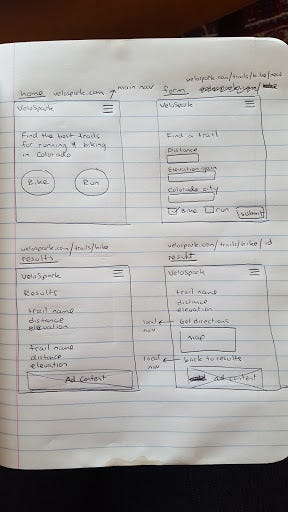 home velospark.com main nav
VeloSpark
Find the best trails
for running & biking
in Colorado
Bike Run
velospark.com/trails/bike/new
form
VeloSpark
Find a trail
Distance
Elevation gain
Colorado city
Bike run submit
velospark.com/trails/bike
results
VeloSpark
Results
trail name
distance
elevation
trail name
distance
elevation
Ad Content
velospark.com/trails/bike/:id
result
VeloSpark
trail name
distance
elevation
local nav
Get directions
map
local nav
back to results
ad content